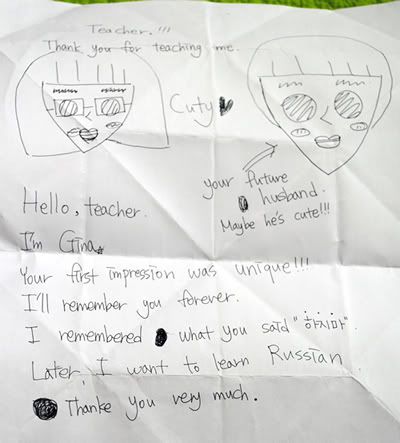 Teacher.!!!
Thank you for teaching me.
Cuty
your future
husband.
Maybe he's cute!!!
Hello, teacher.
I'm Gina.
Your first impression was unique!!!
I'll remember you forever.
I remembered what you said "하지마".
Later, I want to learn Russian
Thanke you very much.